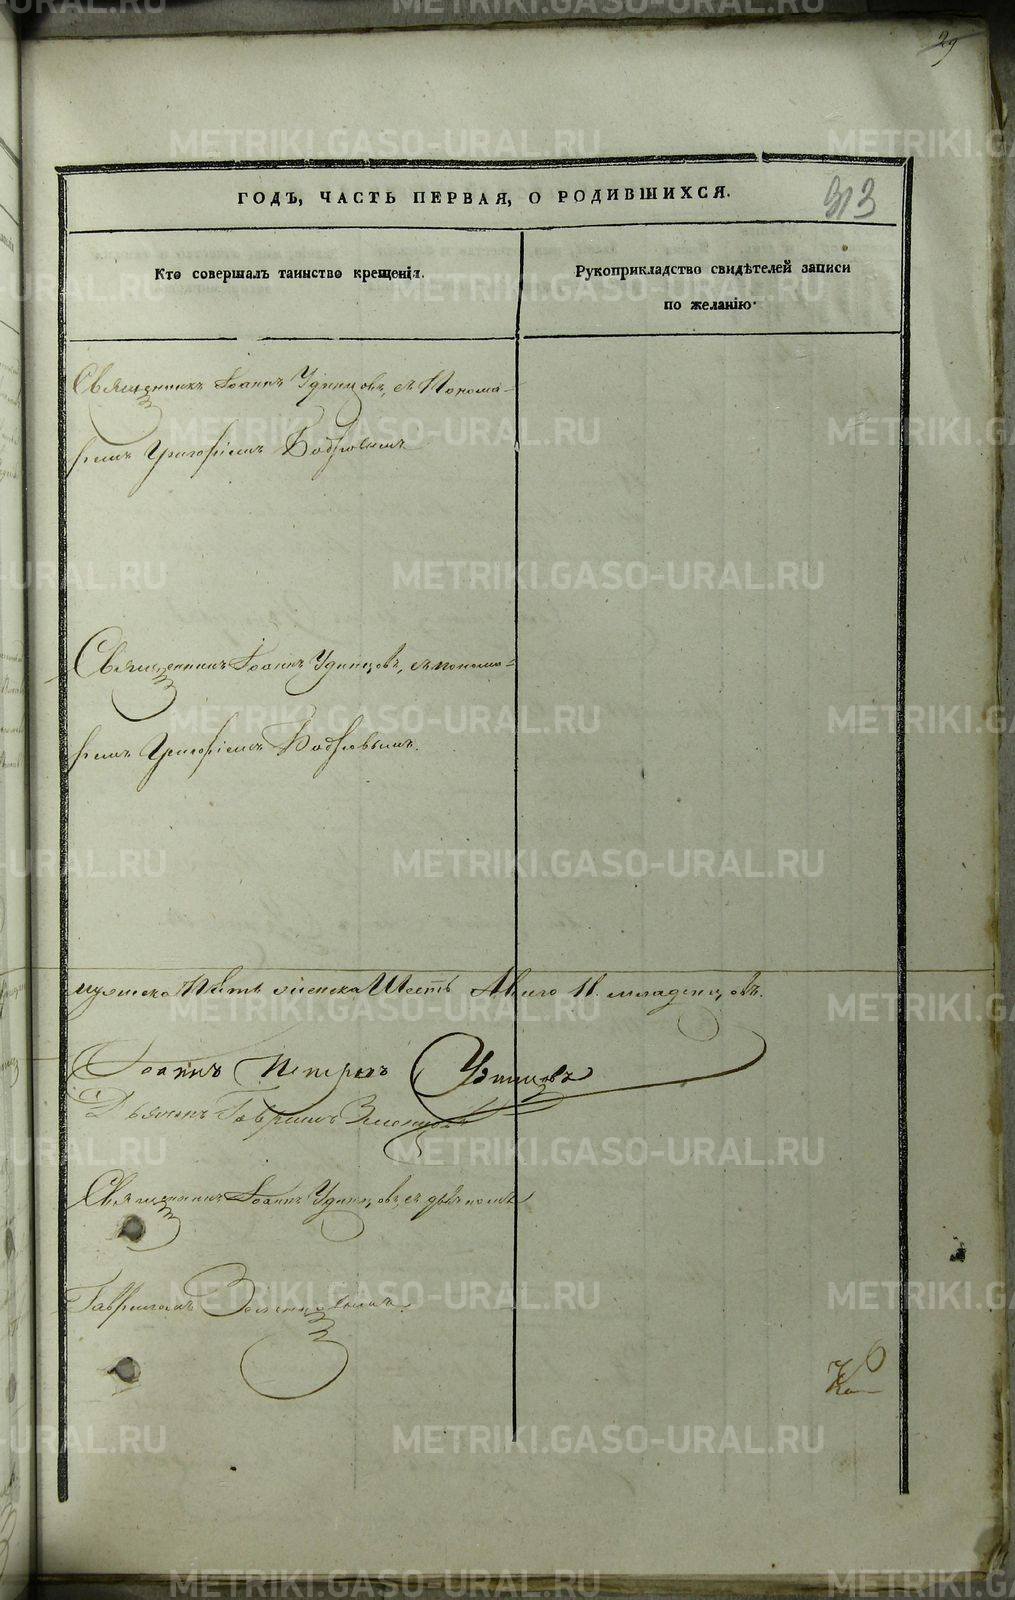 29
313
ГОДЪ, ЧАСТЬ ПЕРВАЯ, О РОДИВШИХСЯ.
Кто совершалъ таинство крещенія.
Рукоприкладство свидѣтелей записи
по желанію.
Священникъ Іоаннъ Удинцовъ, съ Понома-
ремъ Григоріемъ Бобровымъ
Священникъ Іоаннъ Удинцовъ, съ понома-
ремъ Григоріемъ Бобровымъ.
мужеска Пять женска Шесть А всего 11. младенцовъ.
Іоаннъ Петровъ Удинцовъ
Дьячекъ Гавріилъ
Священникъ Іоаннъ Удинцовъ, съ
Гавріиломъ
METRIKI.GASO-URAL.RU